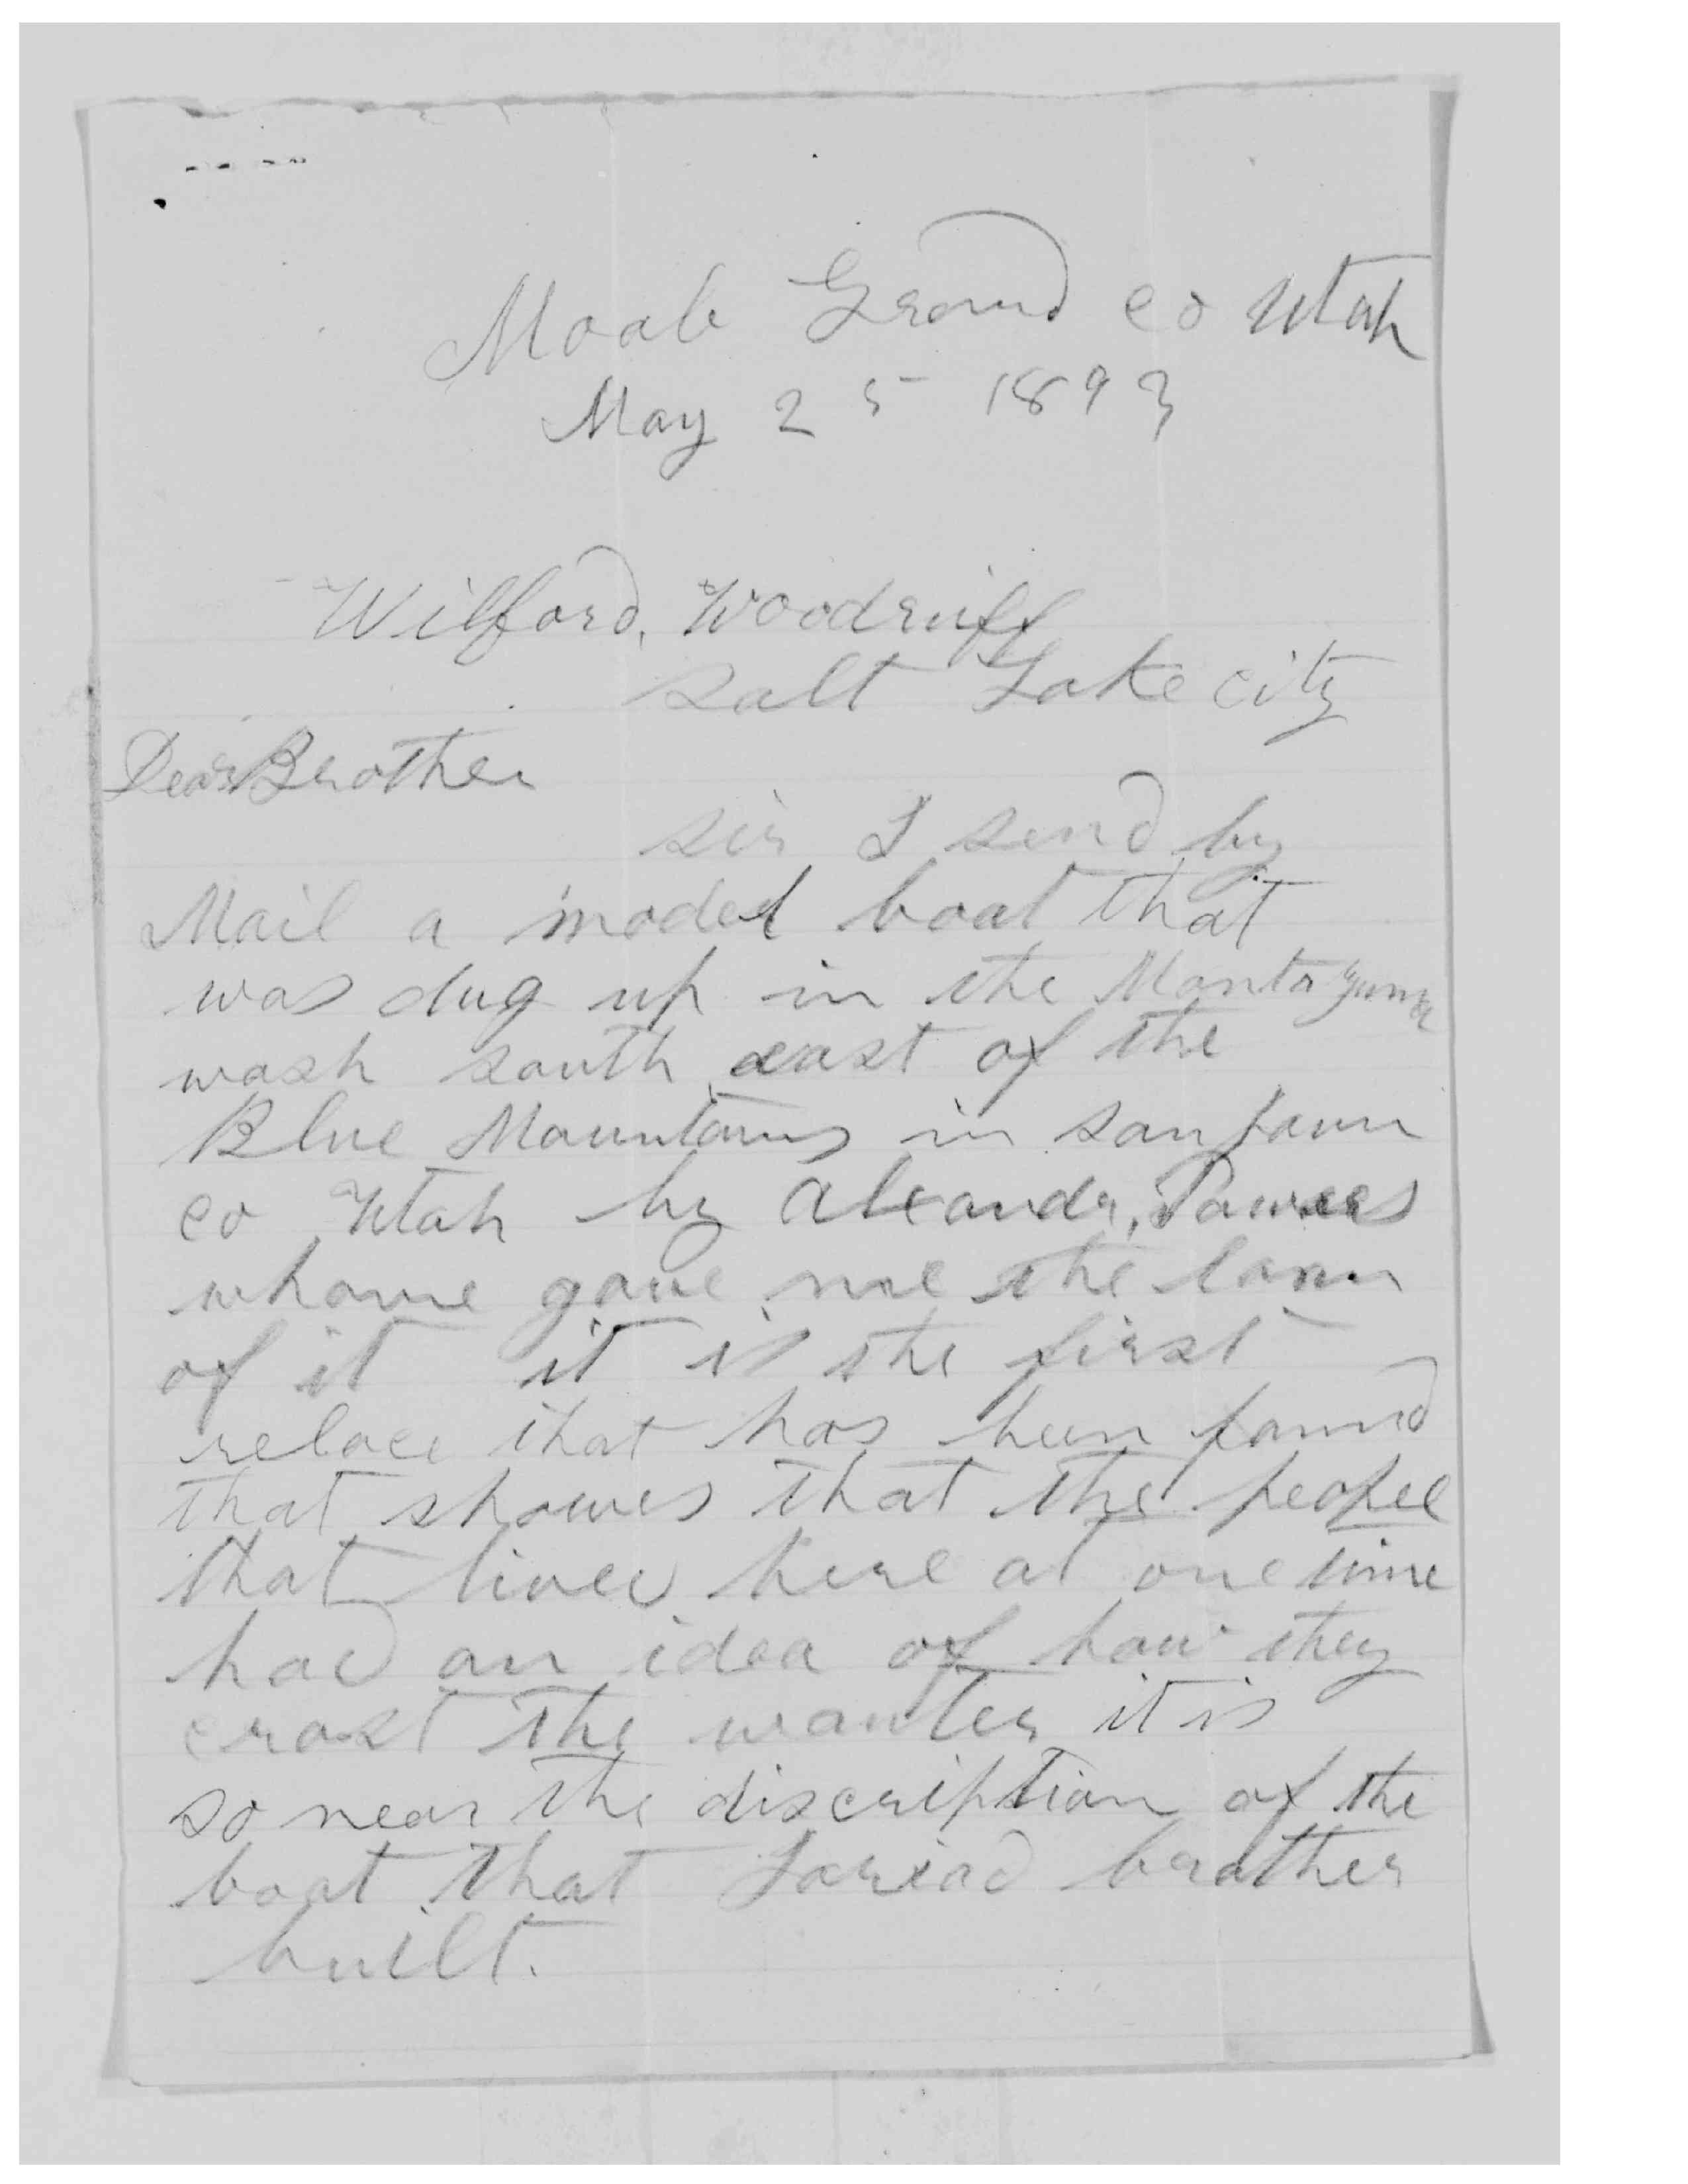 Moab Grand co Utah
May 25 1893
Wilford, Woodruff
Salt Lake city
Dear Brother
sir I send by
Mail a model boat that
was dug up in the Montazuma
wash south east of the
Blue Mountains in san jaun
co Utah by Alexandr,
whome gave me the loan
of it it is the first
relace that has been found
that showes that the people
that lived here at one time
had an idea of how they
crost the wauter it is
so near the discription of the
boat that Jariad brother
built.